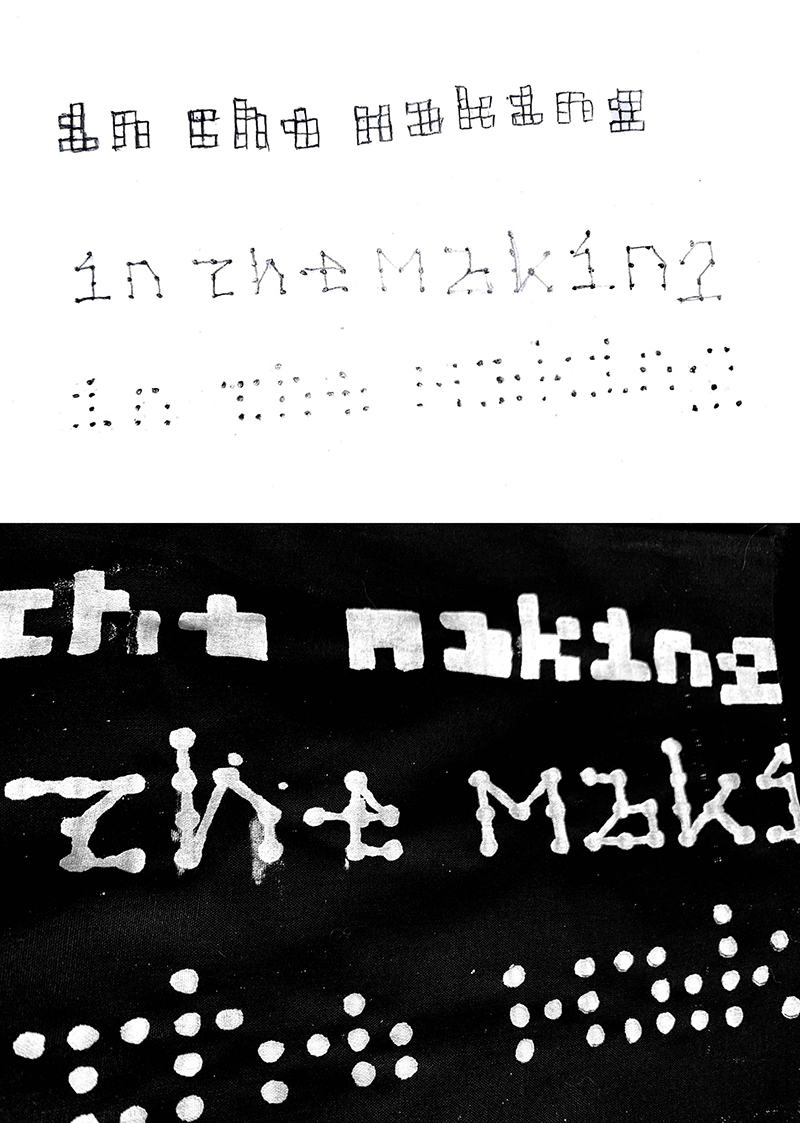 in the making
in the making
in the making
the making
the maki
the mak